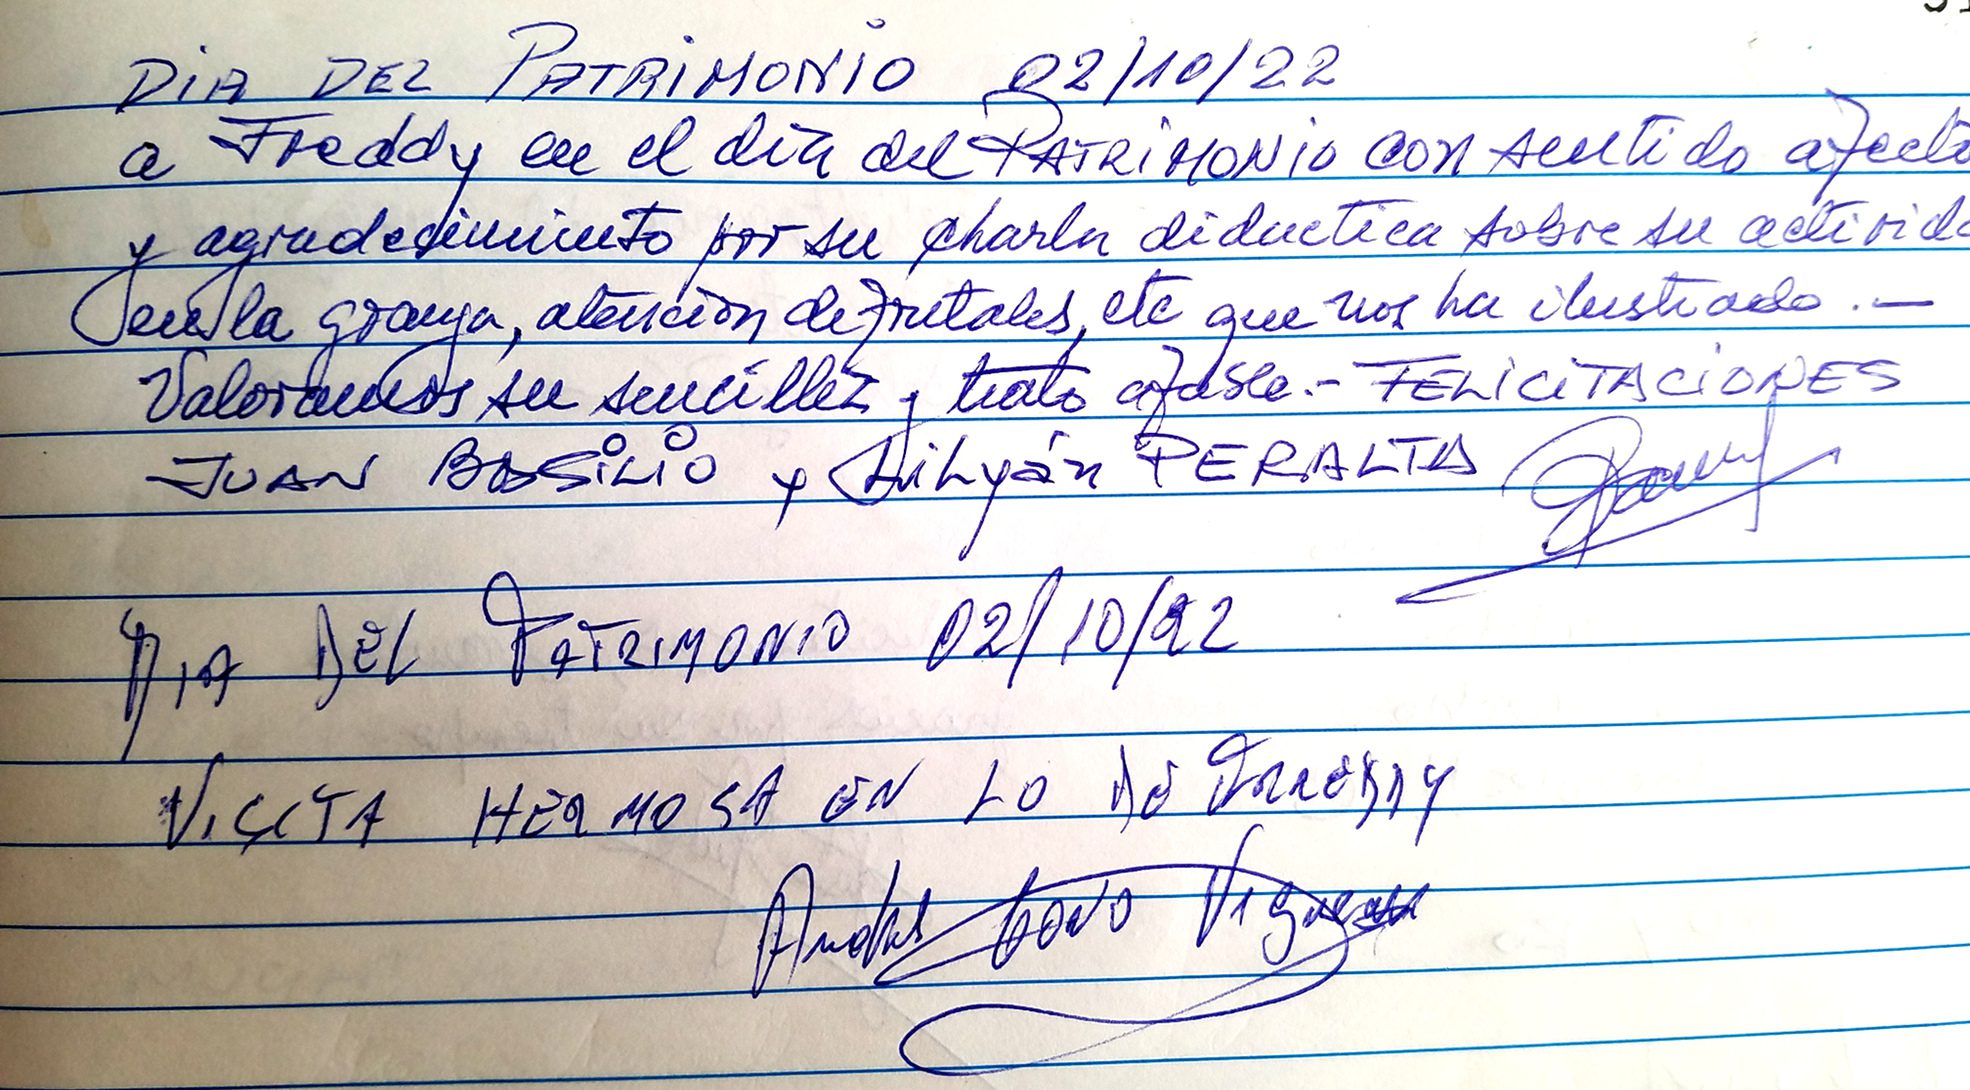 DIA DEL PATRIMONIO 02/10/22
a Freddy en el día del PATRIMONIO con sentido afecto
y agradecimiento por su charla didactica sobre su activida
en la granja, atención de frutales, etc que nos ha ilustrado.-
Valoramos su sencillez y trato afable.- FELICITACIONES
JUAN BASILIO y Lilyán PERALTA
DIA DEL PATRIMONIO 02/10/22
VISITA HERMOSA EN LO DE FREDDY